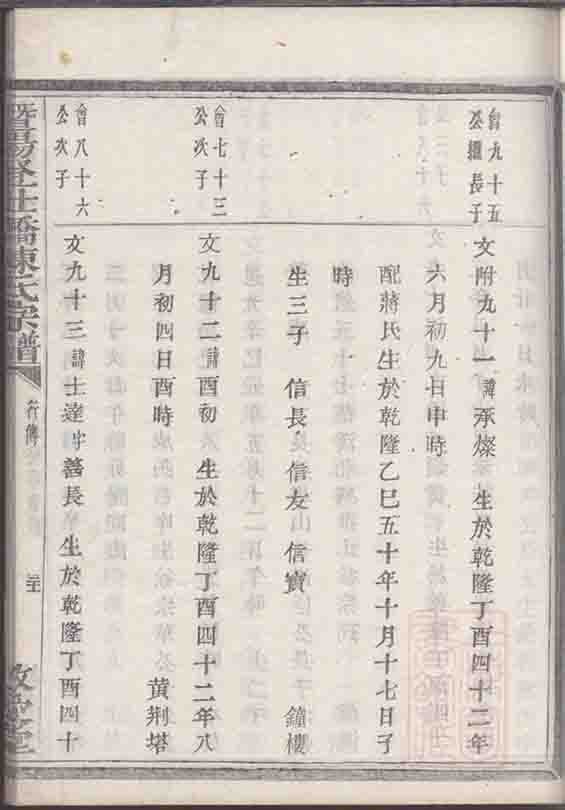 會九十五
公繼長子
文附九十一諱承燦 生於乾隆丁酉四十二年
六月初九日申時
配蔣氏生於乾隆乙巳五十年十月十七日子
時
生三子 信長 信友 信寶 鐘樓
會七十三
公次子
文九十二諱酉初 生於乾隆丁酉四十二年八
月初四日酉時 黃荊塔
會八十六
公次子
文九十三諱士達字善長生於乾隆丁酉四十
橋陳氏宗譜
行傳